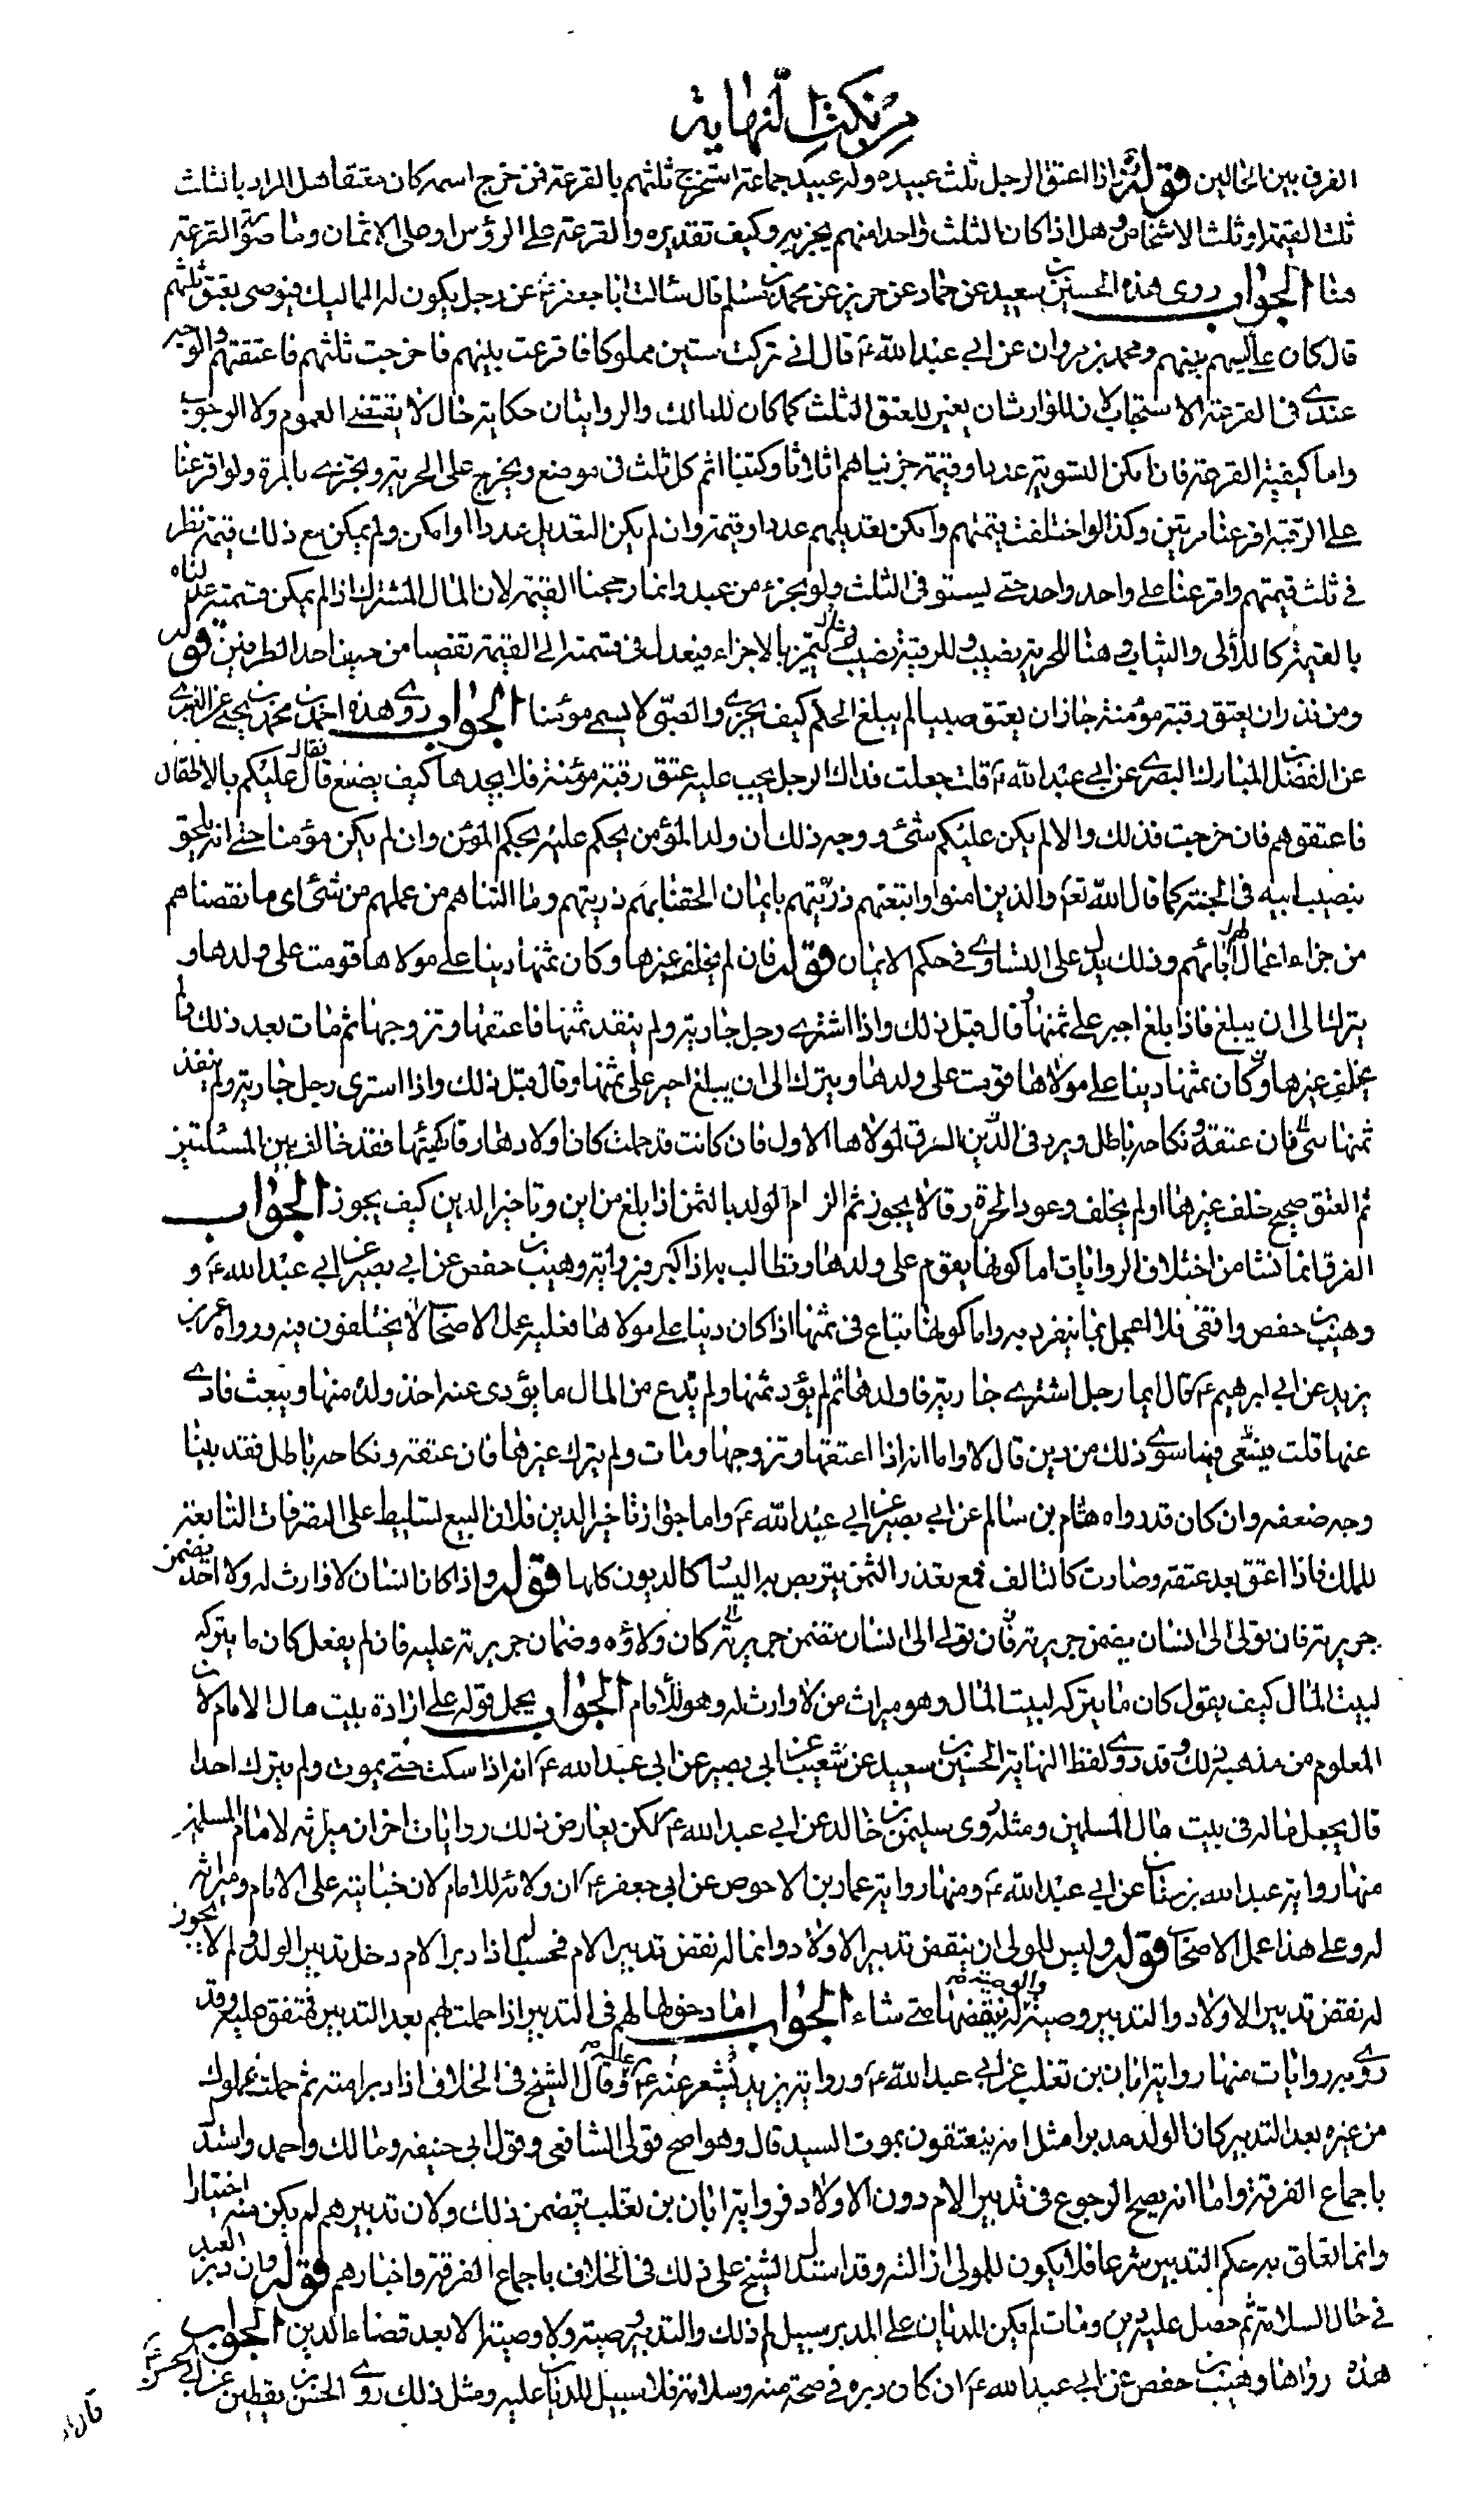 من نكت النهاية
الفرق بين الحالين قوله اذا اعتق الرجل ثلث عبيده وله عبيد جماعة استخرج ثلثهم بالقرعة فمن خرج اسمه كان معتقا هل المراد بالثلث
ثلث القيمة او ثلث الاشخاص وهل اذا كان الثلث واحدا منهم يجزيه وكيف تقديره والقرعة على الرؤس او على الاثمان وما صورة القرعة
هنا الجواب روى هذه الحسين بن سعيد عن حماد عن حريز عن محمد بن مسلم قال سالت ابا جعفر ع عن رجل يكون له المماليك فيوصى بعتق ثلثهم
قال كان على ع يسهم بينهم ومحمد بن مروان عن ابي عبد الله ع قال ابي تركت ستين مملوكا فاقرعت بينهم فاخرجت ثلثهم فاعتقتهم والوجه
عندي في القرعة الاستحباب لان للوارث ان يعين للعتق الثلث كما كان للمالك والروايتان حكاية حال لا يقتضى العموم ولا الوجوب
واما كيفية القرعة فان امكن التسوية عددا وقيمة جزيناهم اثلاثا وكتبنا اسم كل ثلث في موضع ويخرج على الحرية ويجتزى بالمرة ولو اقرعنا
على الرقية اقرعنا مرتين وكذا لو اختلفت قيمتهم وامكن تعديلهم عددا وقيمة وان لم يكن التعديل عددا او امكن ولم يمكن مع ذلك قيمة نظر
في ثلث قيمتهم واقرعنا على واحد واحد حتى يستوفى الثلث ولو بجزء من عبد وانما رجحنا القيمة لان المال المشترك اذا لم يمكن قسمته عدلناه
بالقيمة كاللآلى والثياب وهنا للحرية نصيب وللرقية نصيب ولا يتميز بالاجزاء فيعدل في قسمته الى القيمة تفصيا من حيف احد الطرفين قوله
ومن نذر ان يعتق رقبة مؤمنة جاز ان يعتق صبيا لم يبلغ الحلم كيف يجزى والصبي لا يسمى مؤمنا الجواب روى هذه احمد بن محمد بن يحيى عن النهدي
عن الفضل بن المبارك البصرى عن ابي عبد الله ع قلت جعلت فداك الرجل يجب عليه عتق رقبة مؤمنة فلا يجدها كيف يصنع قال فقال عليكم بالاطفال
فاعتقوهم فان خرجت فذلك والا لم يكن عليكم شئ ووجه ذلك ان ولد المؤمن يحكم عليه بحكم المؤمن وان لم يكن مؤمنا حتى انه يلحق
بنصيب ابيه في الجنة كما قال الله تع والذين امنوا واتبعتهم ذريتهم بايمان الحقنا بهم ذريتهم وما التناهم من عملهم من شئ اى ما نقصناهم
من جزاء اعمال ابائهم وذلك يدل على التساوى في حكم الايمان قوله فان لم يخلف غيرها وكان ثمنها دينا على مولاها قومت على ولدها و
يترك الى ان يبلغ فاذا بلغ اجبر على ثمنها وقال قبل ذلك واذا اشترى رجل جارية ولم ينقد ثمنها فاعتقها وتزوجها ثم مات بعد ذلك ولم
يخلف غيرها وكان ثمنها دينا على مولاها قومت على ولدها ويترك الى ان يبلغ اجبر على ثمنها وقال قبل ذلك واذا اشترى رجل جارية ولم ينقد
ثمنها فان عتقه ونكاحه باطل ويرد في الرق لمولاها الاول فان كانت قد حملت كان اولادها رقا كهيئتها فقد خالف بين المسئلتين
ثم العتق صحيح خلف غيرها او لم يخلف وعود الحرة رقا لا يجوز ثم الزام الولد بالثمن اذا بلغ من اين وتاخير الدين كيف يجوز الجواب
الفرق انما نشا من اختلاف الروايات اما كونها يقوم على ولدها وتطالب به اذا كبر فرواية وهيب بن حفص عن ابي بصير عن ابي عبد الله ع و
وهيب بن حفص واقفى فلا اعمل بما ينفرد به واما كونها تباع في ثمنها اذا كان دينا على مولاها فعليه عمل الاصحاب لا يختلفون فيه ورواه عمر بن
يزيد عن ابي ابرهيم ع قال ايما رجل اشترى جارية فاولدها ثم لم يؤد ثمنها ولم يدع من المال ما يؤدى عنه اخذ ولده منها وبيعت فادى
عنها قلت فيبعن فيما سوى ذلك من دين قال لا واما انه اذا اعتقها وتزوجها ومات ولم يترك غيرها فان عتقه ونكاحه باطل فقد بينا
وجه ضعفه وان كان قد رواه هشام بن سالم عن ابي بصير عن ابي عبد الله ع واما جواز تاخير الدين فلان البيع تسليط على التصرفات التابعة
للملك فاذا اعتق بعد عتقه وصارت كالتالف فمع تعذر الثمن يتربص به اليسار كالديون كلها قوله واذا كان انسان لا وارث له ولا احد يضمن
جريرته فان توالى الى انسان يضمن جريرته كان ولاؤه وضمان جريرته عليه فان لم يفعل كان ما يتركه
لبيت المال كيف يقول كان ما يتركه لبيت المال وهو ميراث من لا وارث له وهو للامام الجواب يحمل قوله على ارادة بيت مال الامام لان
المعلوم من مذهبه ذلك وقد روى لفظ النهاية الحسين بن سعيد عن شعيب عن ابي بصير عن ابي عبد الله ع انه اذا سكت حتى يموت ولم يترك احدا
قال يجعل ماله في بيت مال المسلمين ومثله روى سليمن بن خالد عن ابي عبد الله ع لكن يعارض ذلك روايات اخر ان ميراثه لامام المسلمين
منها رواية عبد الله بن سنان عن ابي عبد الله ع ومنها رواية عمار بن الاحوص عن ابي جعفر ع ان ولائه للامام لان جنايته على الامام وميراثه
له وعلى هذا عمل الاصحاب قوله وليس للمولى ان ينقض تدبير الاولاد وانما له نقض تدبير الام فحسب لم اذا دبر الام دخل تدبير الولد ولم لا يجوز
له نقض تدبير الاولاد والتدبير وصية والوصية له نقضها متى شاء الجواب اما دخولها لهم في التدبير اذا حملت بهم بعد التدبير فمتفق عليه وقد
روى به روايات منها رواية ابان بن تغلب عن ابي عبد الله ع ورواية يزيد بن شعر عنه ع وقال الشيخ في الخلاف اذا دبر امته ثم حملت بمملوك
من غيره بعد التدبير كان الولد مدبرا مثل امه ينعتقون بموت السيد قال وهو اصح قولى الشافعى وقول ابي حنيفه ومالك واحمد واستدل
باجماع الفرقة واما انه يصح الرجوع في تدبير الام دون الاولاد فرواية ابان بن تغلب يتضمن ذلك ولان تدبيرهم لم يكن منه اختيارا
وانما تعلق بهم حكم التدبير شرعا فلا يكون للمولى ازالته وقد استدل الشيخ على ذلك في الخلاف باجماع الفرقة واخبارهم قوله فان دبر العبد
في حال السلامة ثم حصل عليه دين ومات لم يكن للديان على المدبر سبيل لم ذلك والتدبير وصية ولا وصية الا بعد قضاء الدين الجواب
هذه رواها وهيب بن حفص عن ابي عبد الله ع ان كان دبره في صحة منه وسلامة فلا سبيل للديان عليه ومثل ذلك روى الحسن بن يقطين عن ابي الحسن ع
قال اذا